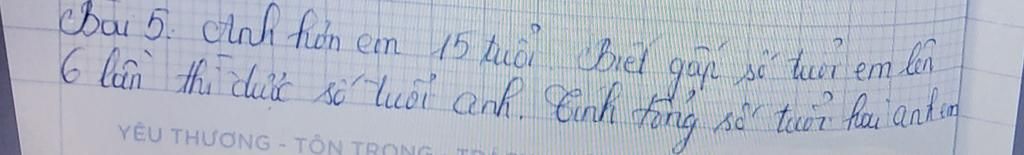 Bài 5. Anh hơn em 15 tuổi. Biết gấp số tuổi em lên
6 lần thì được số tuổi anh. Tính tổng số tuổi hai anh em
YÊU THƯƠNG - TÔN TRỌNG